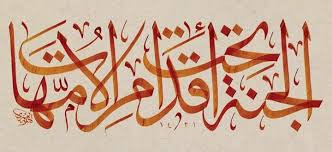 الجنة تحت أقدام الأمهات
١٤٣١